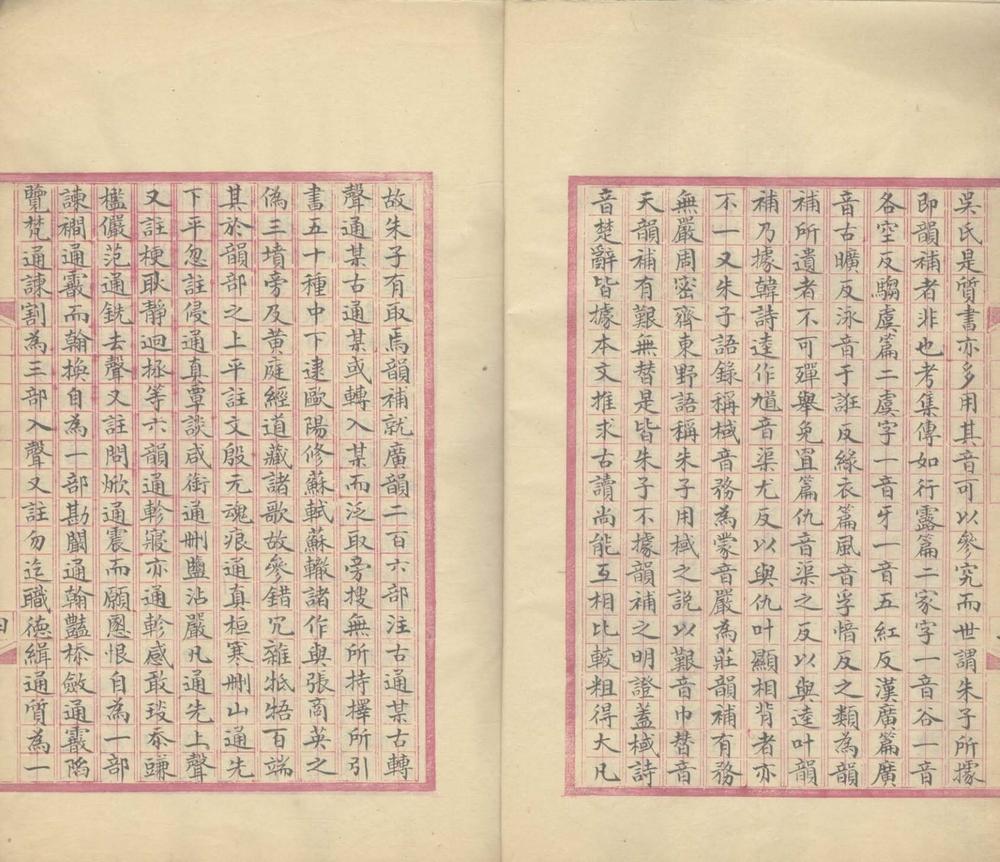 吳氏是質書亦多用其音可以參究而世謂朱子所據
即韻補者非也考集傳如行露篇二家字一音谷一音
各空反騶虞篇二虞字一音牙一音五紅反漢廣篇廣
音古曠反泳音于誑反綠衣篇風音孚愔反之類為韻
補所遺者不可殫舉兔罝篇仇音渠之反以與逵叶韻
補乃據韓詩逵作馗音渠尤反以與仇叶顯相背者亦
不一又朱子語錄稱棫音務為蒙音嚴為莊韻補有務
無嚴周密齊東野語稱朱子用棫之說以艱音巾替音
天韻補有艱無替是皆朱子不據韻補之明證蓋棫詩
音楚辭皆據本文推求古讀尚能互相比較粗得大凡
故朱子有取焉韻補就廣韻二百六部注古通某古轉
聲通某古通某或轉入某而泛取旁搜無所持擇所引
書五十種中下逮歐陽修蘇軾蘇轍諸作與張商英之
偽三墳旁及黃庭經道藏諸歌故參錯冗雜牴牾百端
其於韻部之上平註文殷元魂痕通真桓寒刪山通先
下平忽註侵通真覃談咸銜通刪鹽沾嚴凡通先上聲
又註梗耿靜迥拯等六韻通軫寢亦通軫感敢琰忝豏
檻儼范通銑去聲又註問焮通震而願慁恨自為一部
諫襇通霰而翰換自為一部勘闞通翰豔㮇斂通霰陷
覽梵通諫割為三部入聲又註勿迄職德緝通質為一